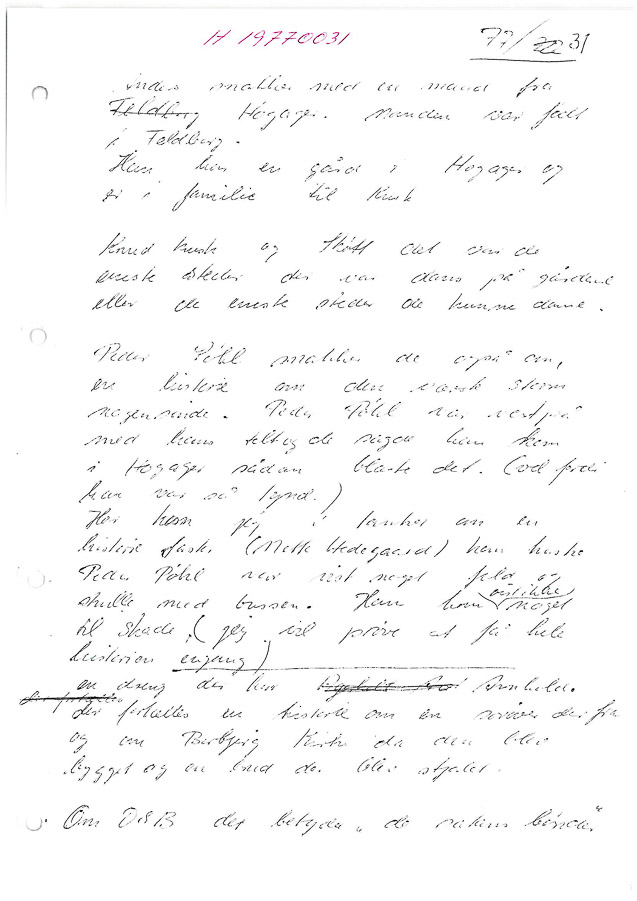 H 19770031
77/31
Inder snakker med en mand fra
Feldberg Hogager. manden var født
i Feldberg.
Han har en gård i Hogager og
er i familie til Kusk
Knud Kusk og Skøtt det var de
eneste steder der var dans på gårdene
eller de eneste steder de kunne danse.
Peder Pöhl snakker de også om,
en historie om den værste storm
nogensinde. Peder Pöhl var vestpå
med hans telt og de sagde han kom
i Hogager sådan blæste det. (od fordi
han var så tynd.)
Her kom jeg i tanker om en
historie faster (Mette Hedegaard) kan huske
Peder Pöhl var vist noget fuld og
skulle med bussen. Han kom vist ikke noget
til skade, (jeg vil prøve at få hele
historien engang)
en dreng der hed Arnhold.
der fortælles en historie om en røver der fra
og om Borbjerg Kirke da den blev
bygget og en brud der blev stjålet.
Om DSB det betyder "de satans bønder"